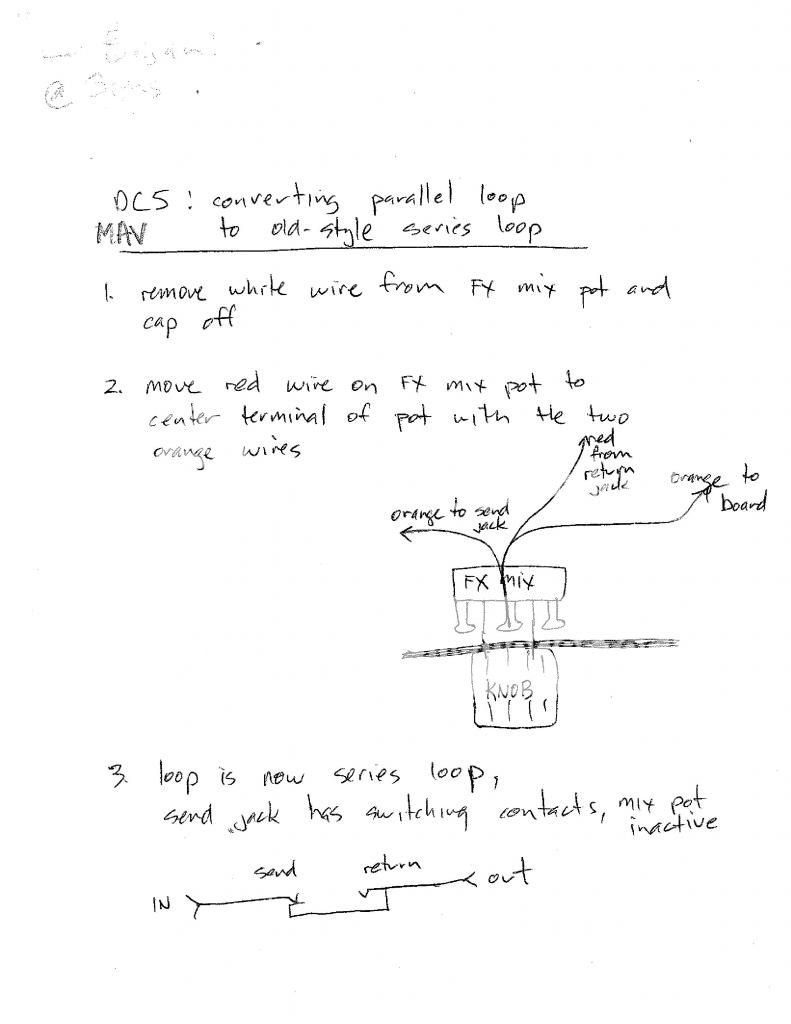 @
DC5: converting parallel loop
MAV to old-style series loop
1. remove white wire from FX mix pot and
cap off
2. move red wire on FX mix pot to
center terminal of pot with the two
orange wires
red
from
return
jack
orange to
board
orange to send
jack
FX mix
KNOB
3. loop is now series loop,
send jack has switching contacts, mix pot
inactive
send return
IN out